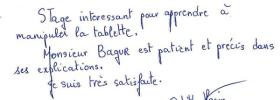 STage intéressant pour apprendre à
manipuler la tablette.
Monsieur BAGUR est patient et précis dans
ses explications.
Je suis très satisfaite.